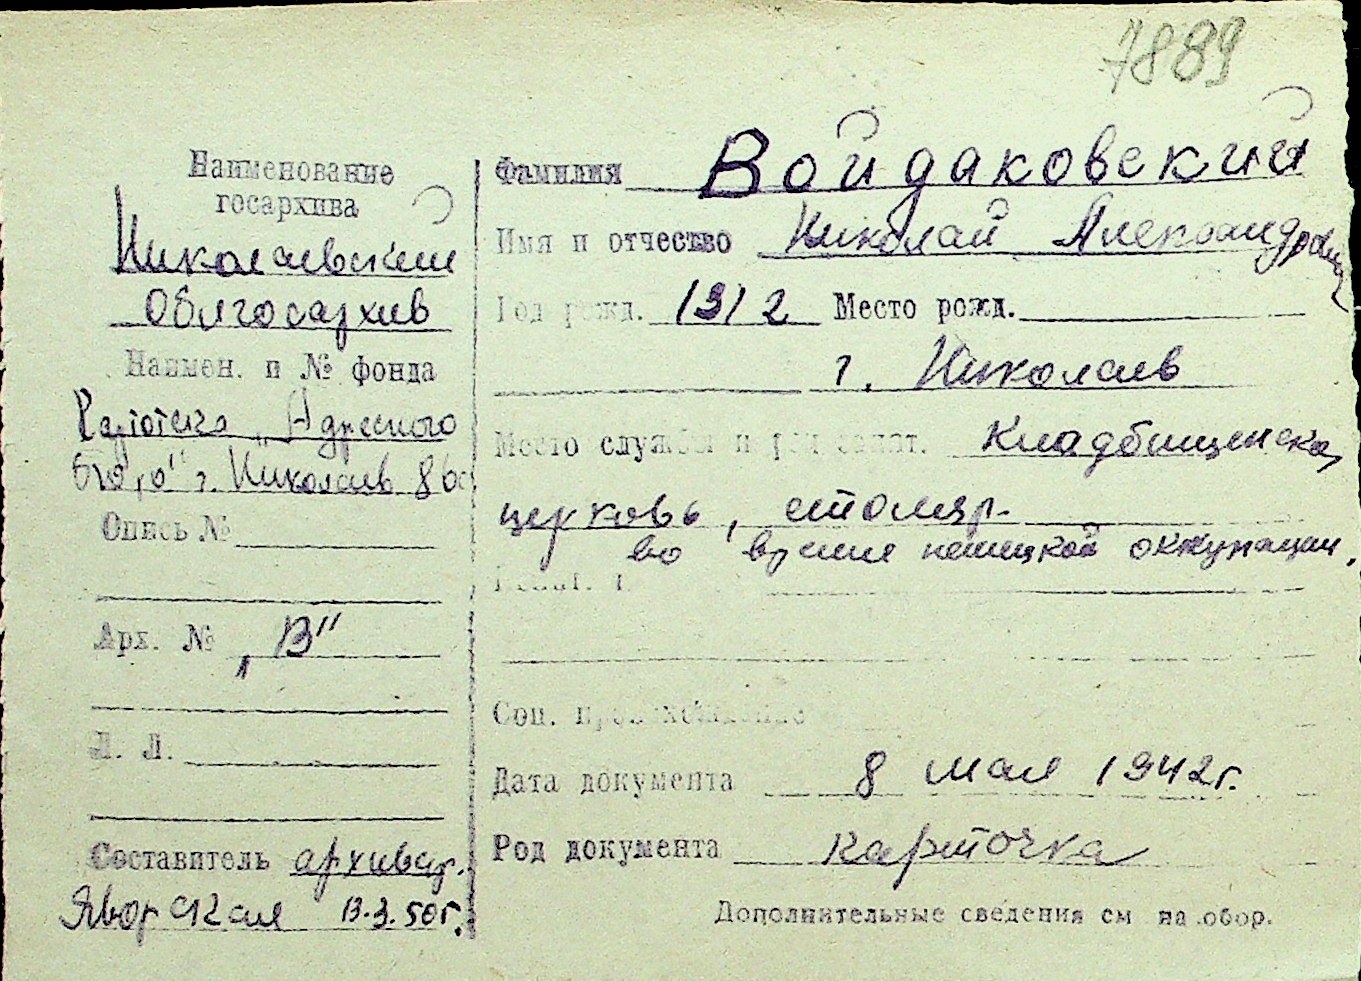 7889
Наименование
госархива
Николаевский
Облгосархив
Наимен. и № фонда
Картотека „Адресного
бюро" г. Николаев
Опись №
Арх. № „В"
Л. Л.
Составитель архивар.
Яворская 13.3.50г.
Фамилия Войдаковский
Имя и отчество Николай Александрович
Год рожд. 1912 Место рожд.
г. Николаев
Место службы и род занят. Кладбищенска,
церковь, столяр.
во время немецкой оккупации.
Соц. происхождение
Дата документа 8 мая 1942г.
Род документа карточка
Дополнительные сведения см на обор.